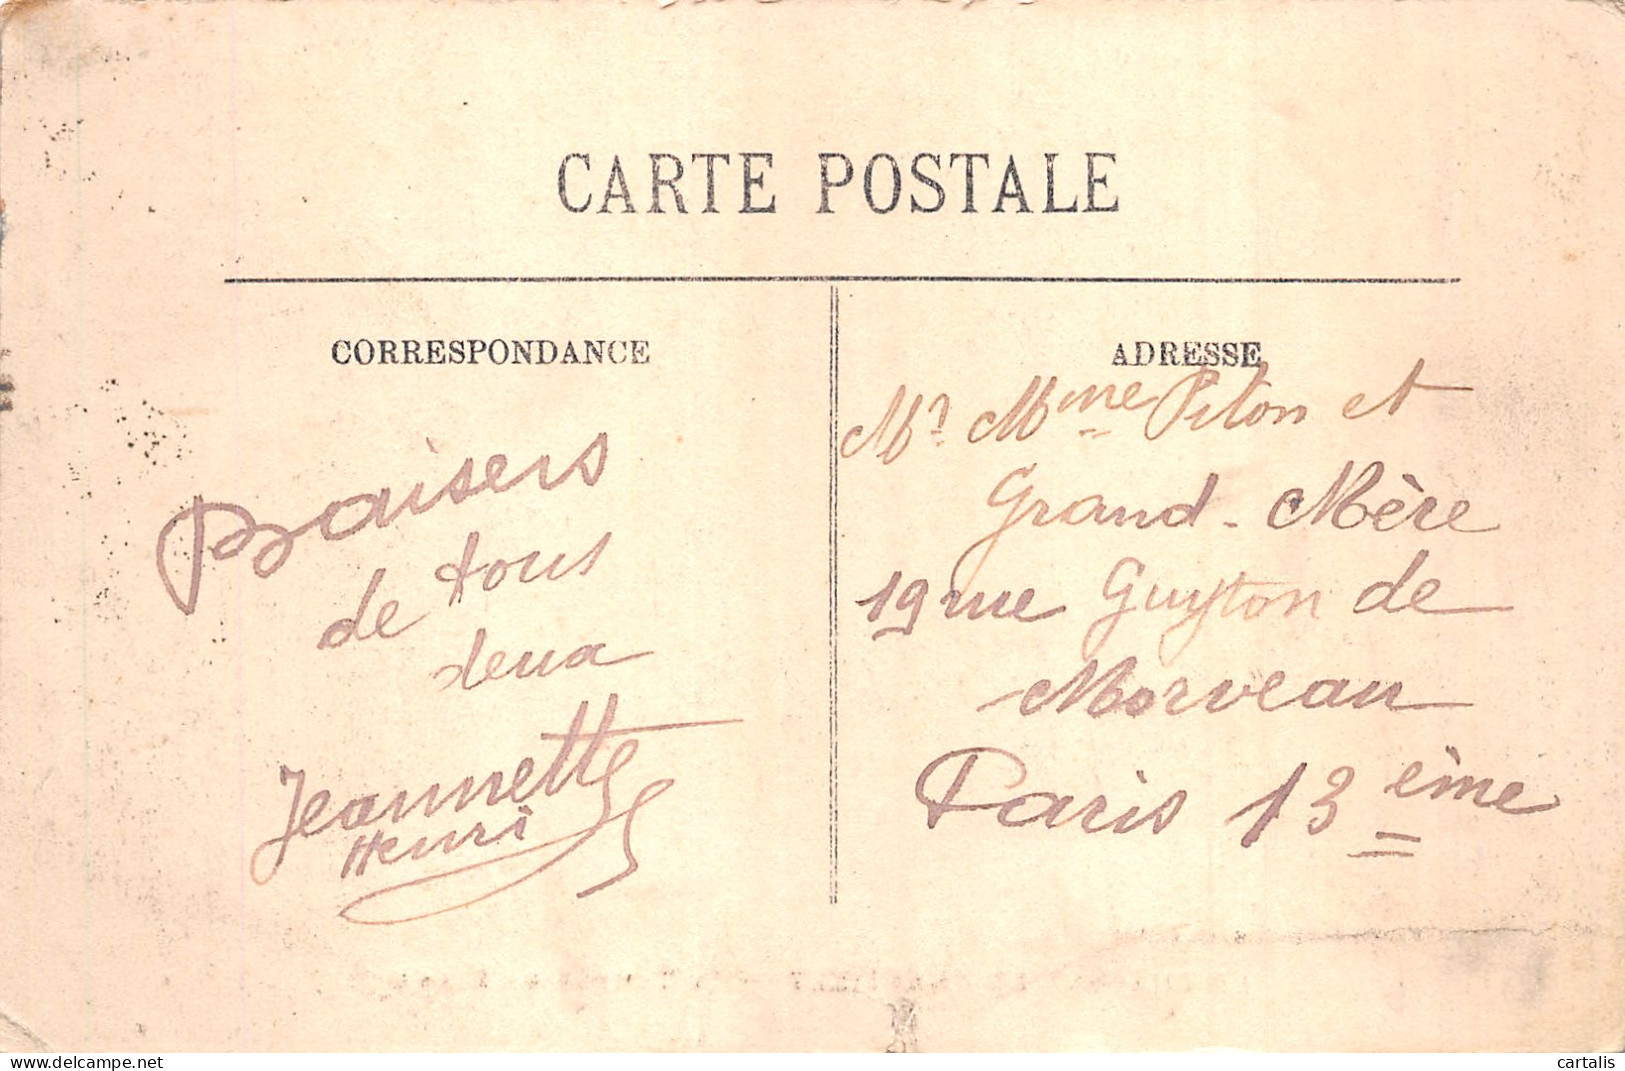 CARTE POSTALE
CORRESPONDANCE
Baisers
de tous
deux
Jeannette
Henri
ADRESSE
Mr Mme Piton et
Grand-Mère
19 rue Guyton de
Morveau
Paris 13 ème
www.delcampe.net
cartalis